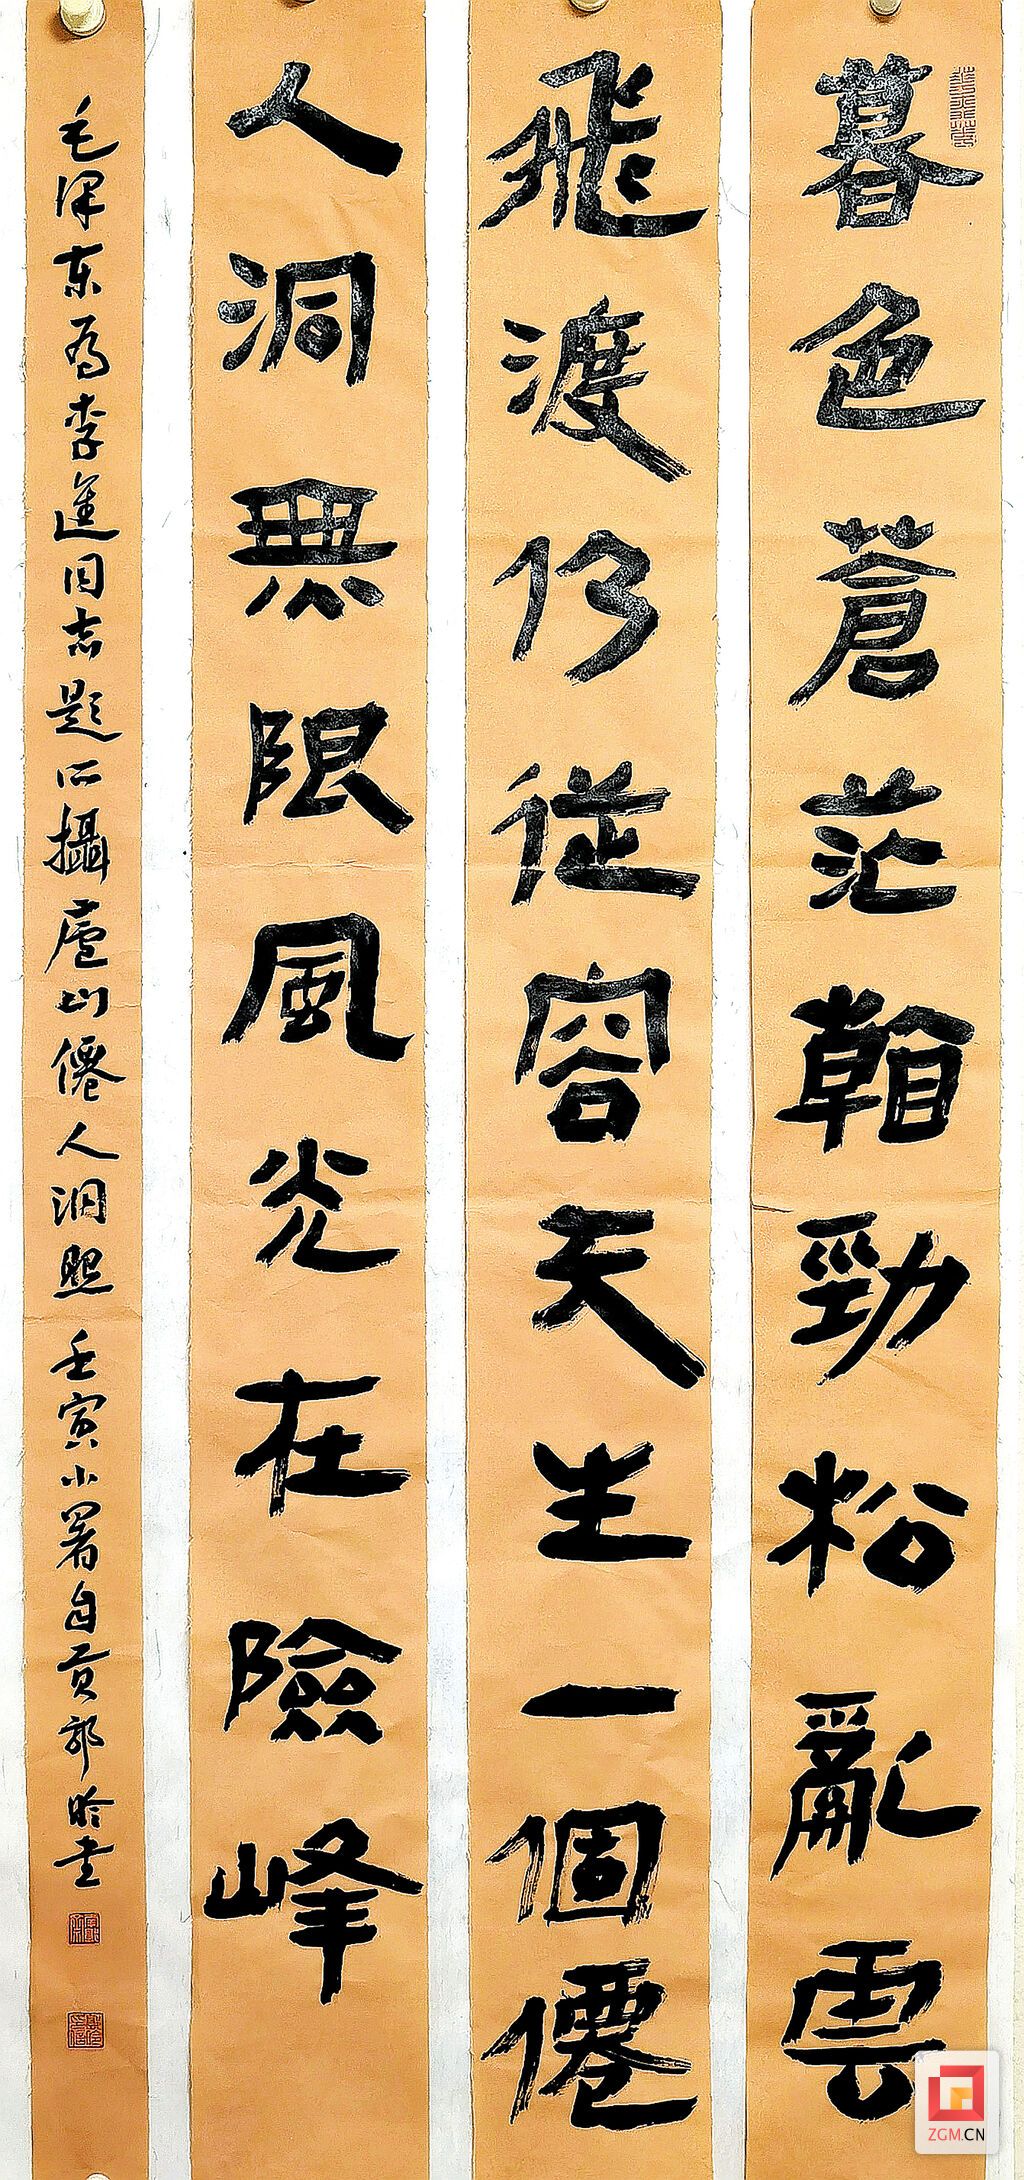 暮色蒼茫看勁松亂雲
飛渡仍從容天生一個僊
人洞無限風光在險峰
毛澤东為李進同志題所攝廬山僊人洞照 壬寅小暑自貢郭昤书
ZGM.CN